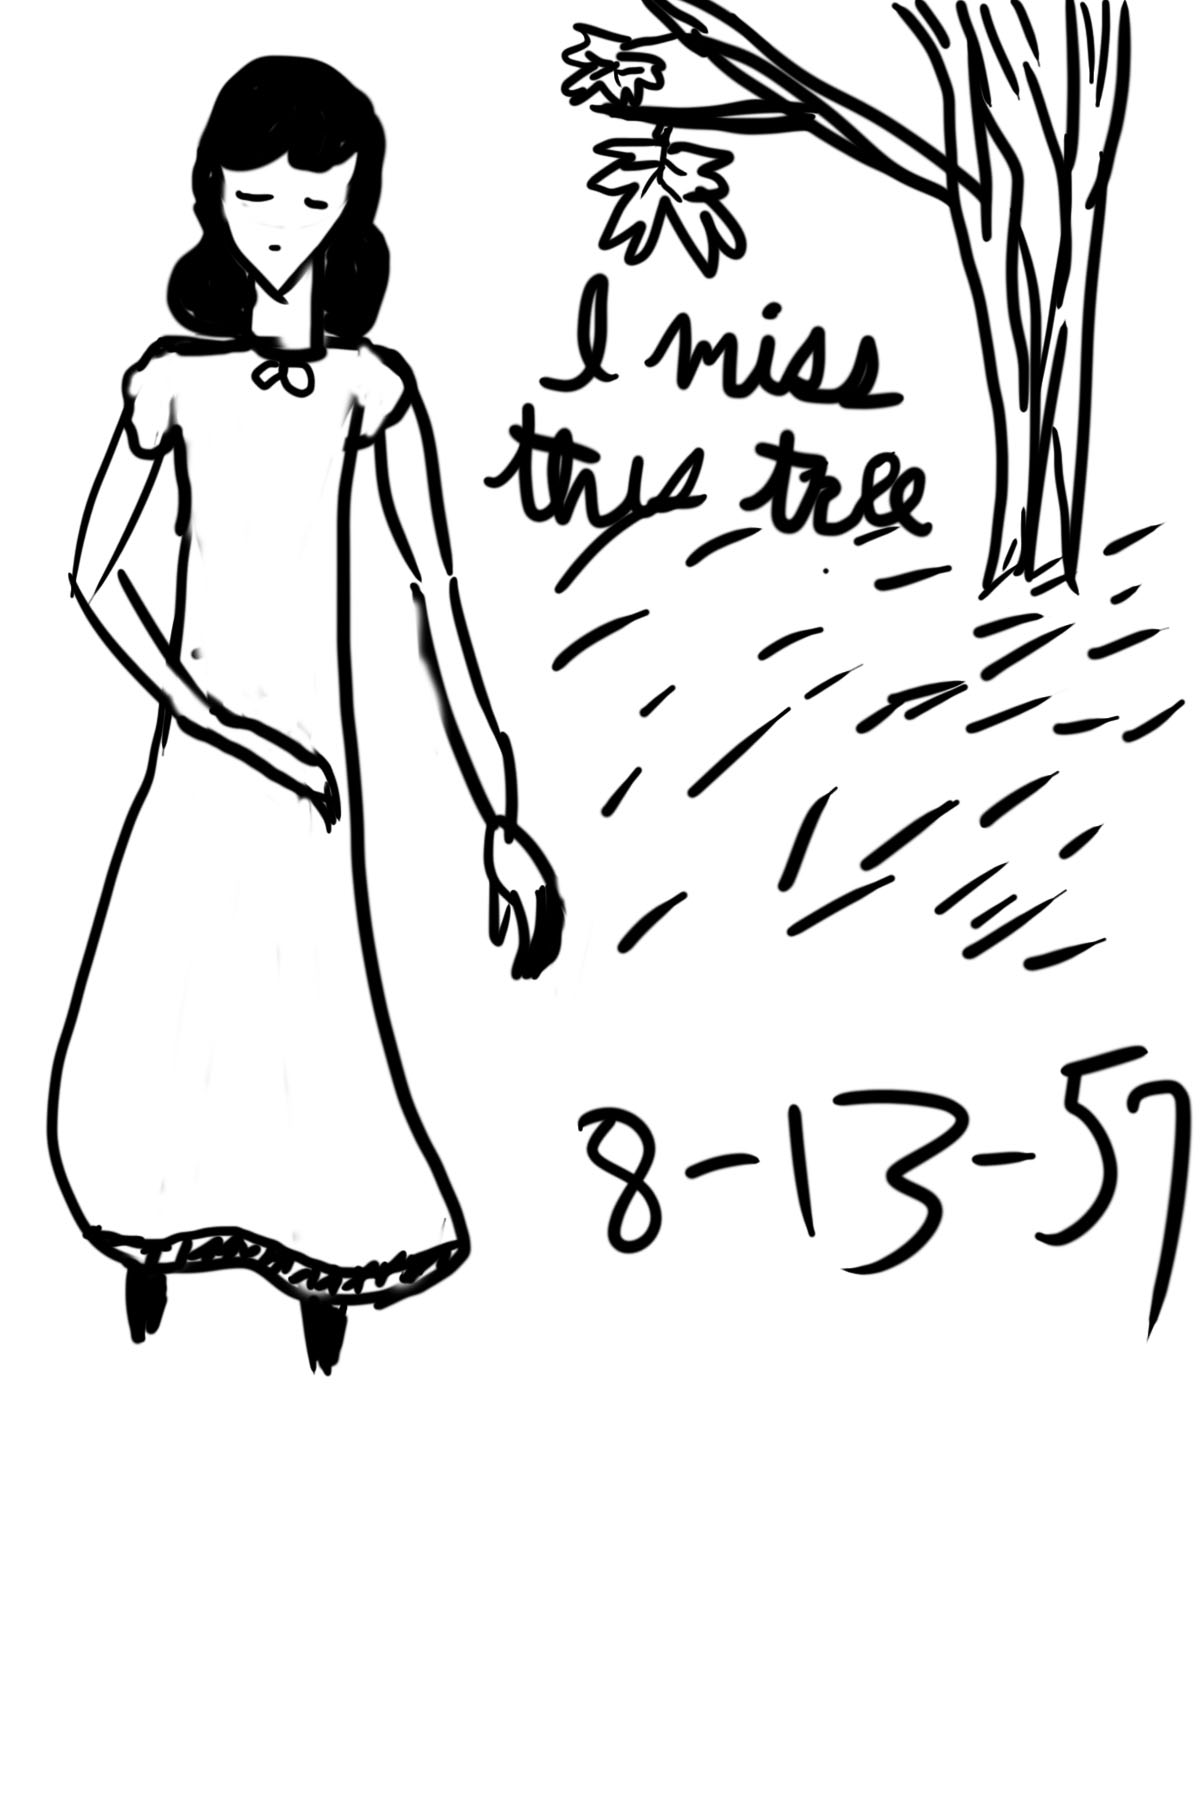 I miss
this tree
8-13-57